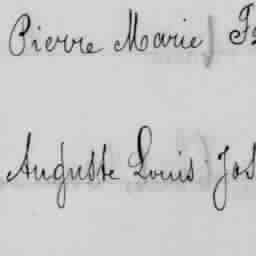 Pierre Marie
Auguste Louis Jos